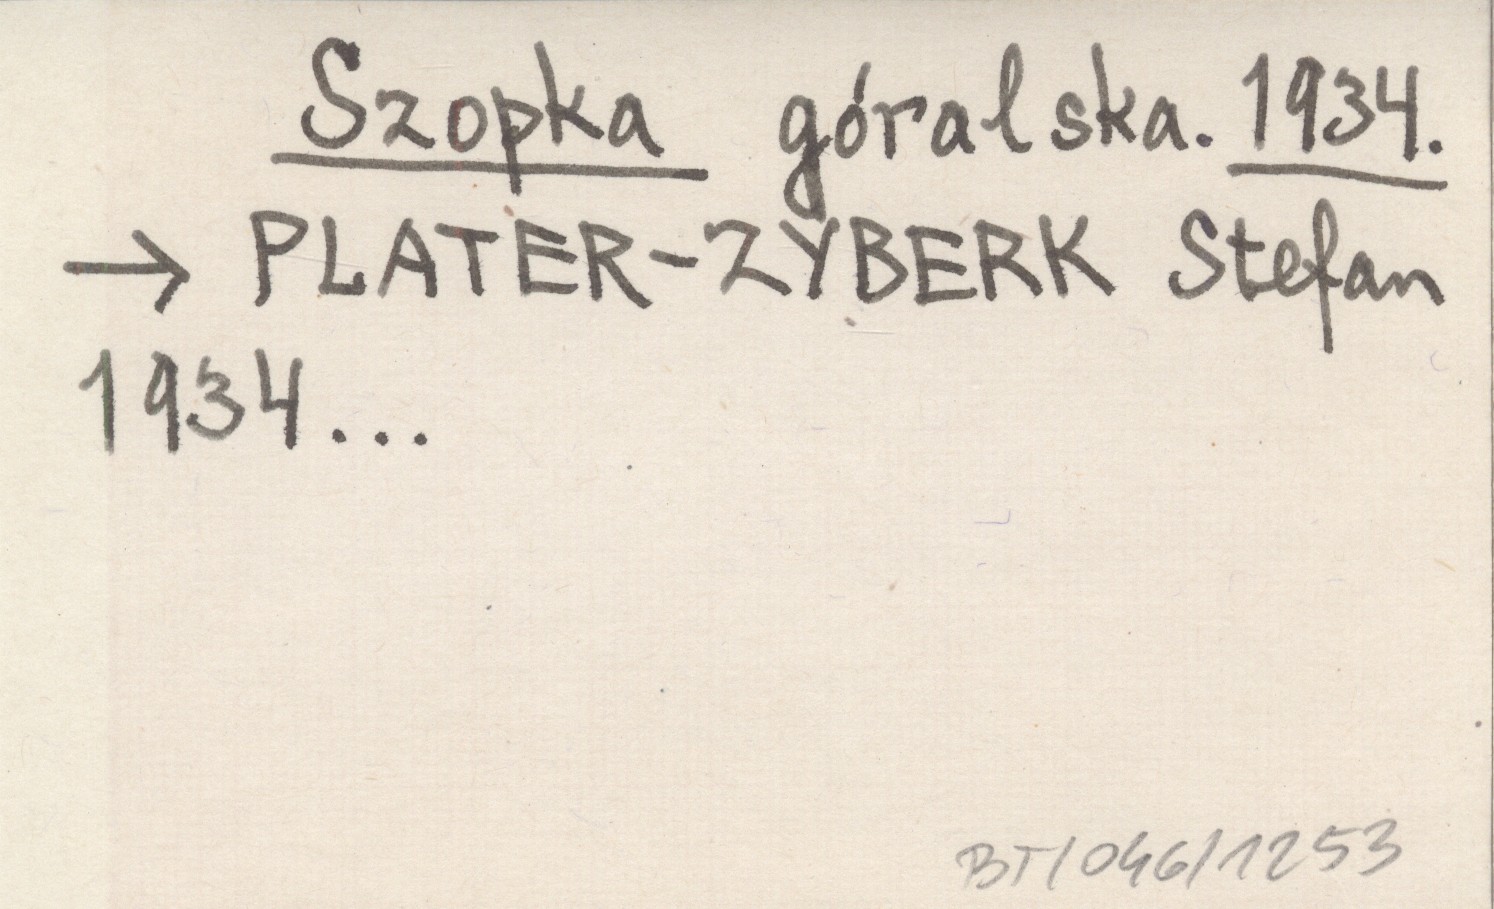 Szopka góralska. 1934.
→ PLATER-ZYBERK Stefan
1934...
BT/046/1253